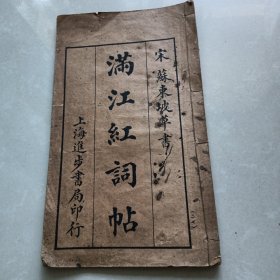 宋蘇東坡草書
滿江紅詞帖
上海進步書局印行